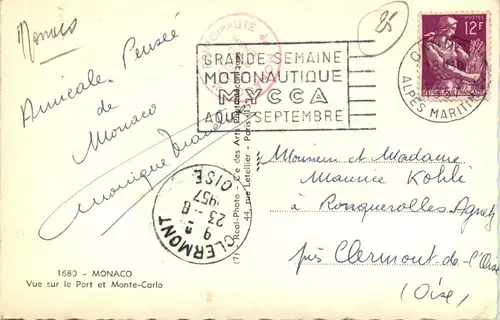 Monaco
25
Amicale Pensée
de
Monaco
Monique
GRANDE SEMAINE
MOTONAUTIQUE
MYCCA
AOUT SEPTEMBRE
POSTES
12F
ALPES MARITIMES
Monsieur et Madame
Maurice Kohli
à Ronquerolles Agnetz
près Clermont-de-l'Oise
(Oise)
CLERMONT
9 H
23 - 8
1957
OISE
(7) - Real-Photo - Cie des Arts Photomécaniques
44, rue Letellier - Paris (15e)
1680 - MONACO
Vue sur le Port et Monte-Carlo